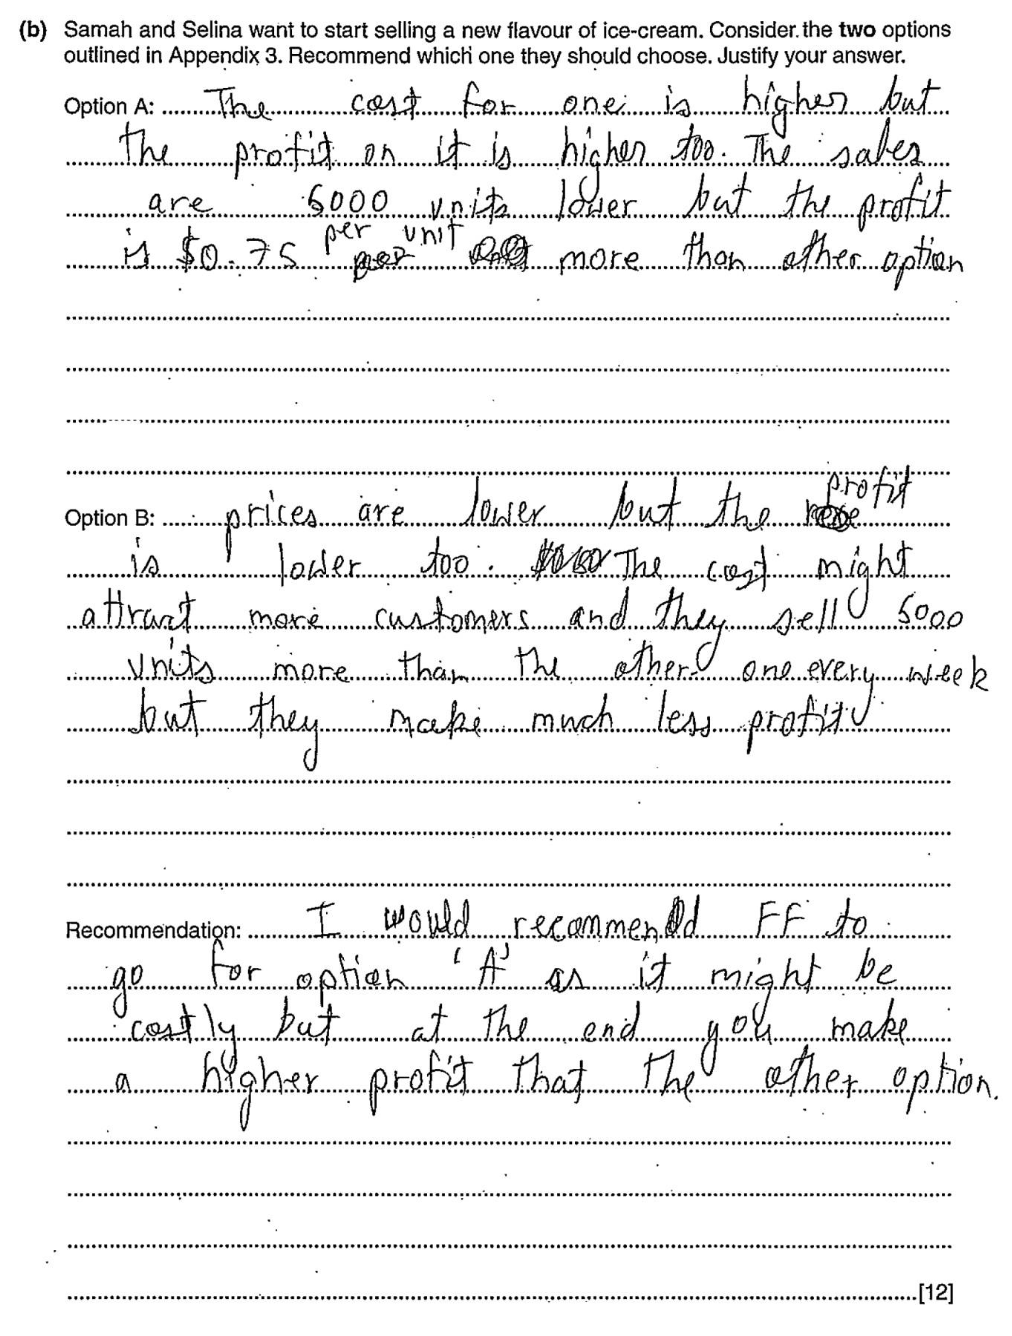 (b) Samah and Selina want to start selling a new flavour of ice-cream. Consider the two options
outlined in Appendix 3. Recommend which one they should choose. Justify your answer.
Option A: The cost for one is higher but
the profit on it is higher too. The sales
are 5000 units lower but the profit
is $0.75 per unit more than other option
Option B: prices are lower but the profit
is lower too. The cost might
attract more customers and they sell 5000
units more than the other one every week
but they make much less profit
Recommendation: I would recommend FF to
go for option 'A' as it might be
costly but at the end you make
a higher profit that the other option.
[12]